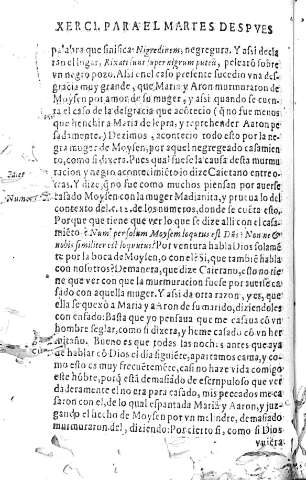 XERCI. PARA EL MARTES DESPVES
palabra que sinifica: Nigredinem, negregura. Y assi decla
ran el lugar, Rixati sunt super nigrum puteũ, pelearõ sobre
vn negro pozo. Assi en el caso presente sucedio vna des-
gracia muy grande, que Maria y Aron murmuraron de
Moysen por amor de su muger, y assi quando se cuen-
ta el caso de la desgracia que acõtecio (q̃ no fue menos
que henchir a Maria de lepra, y reprehender Aaron pe
sadamente.) Dezimos, acontecio todo esto por la ne-
gra muger de Moysen, por aquel negregado casamiẽ
to, como si dixera. Pues qual fuesse la causa desta murmu
racion y negro acontecimiẽto lo dize Caietano entre o-
tras. Y dize, q̃ no fue como muchos piensan por auerse
casado Moysen con la muger Madianita, y prueualo del
contexto del c. 12. de los numeros, donde se cuẽta este
Por que que tiene que ver lo que se dize alli con el casa-
miẽto: Num per solum Moysem loquutus est Dñs? Nonne &
nobis similiter est loquutus? Por ventura habla Dios solamẽ
te por la boca de Moysen, o con el? Si, que tambiẽ habla
con nosotros? De manera, que dize Caietano, esto no tie
ne que ver con que la murmuracion fuesse por auerse ca
sado con aquella muger. Y assi da otra razon, y es, que
ella se quexò a Maria y a Aron de su marido, diziendoles
con enfado: Basta que yo pensaua que me casaua cõ vn
hombre seglar, como si dixera, y heme casado cõ vn her
mitaño. Bueno es que todas las noches antes que aya
de hablar cõ Dios el dia siguiẽte, apartamos cama, y co-
mo esto es muy frecuẽtemẽte, casi no haze vida comigo
este hõbre, porq̃ està demasiado de escrupuloso que ver
daderamente el no era para casado, mis peccados me ca-
saron con el, de lo qual espantada Maria y Aaron, y juz-
gando el hecho de Moysen por vn melindre, demasiado
murmuraron del, diziendo: Por cierto si, como si Dios
vuiera
Numer.